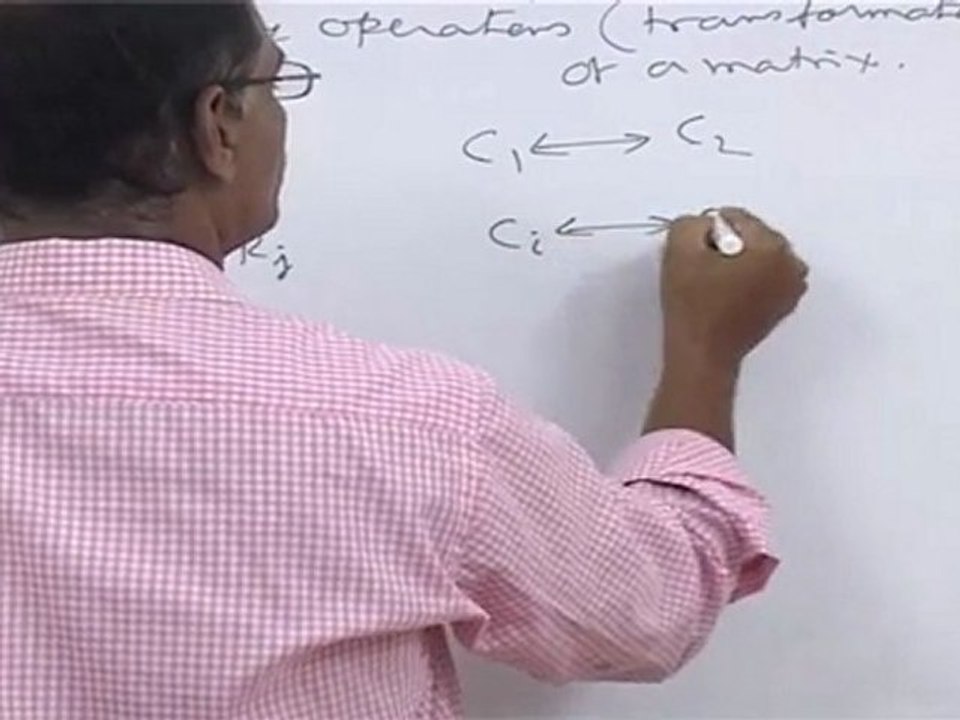 operations (transformatio
of a matrix.
C₁ ↔ C₂
Rj Ci ↔